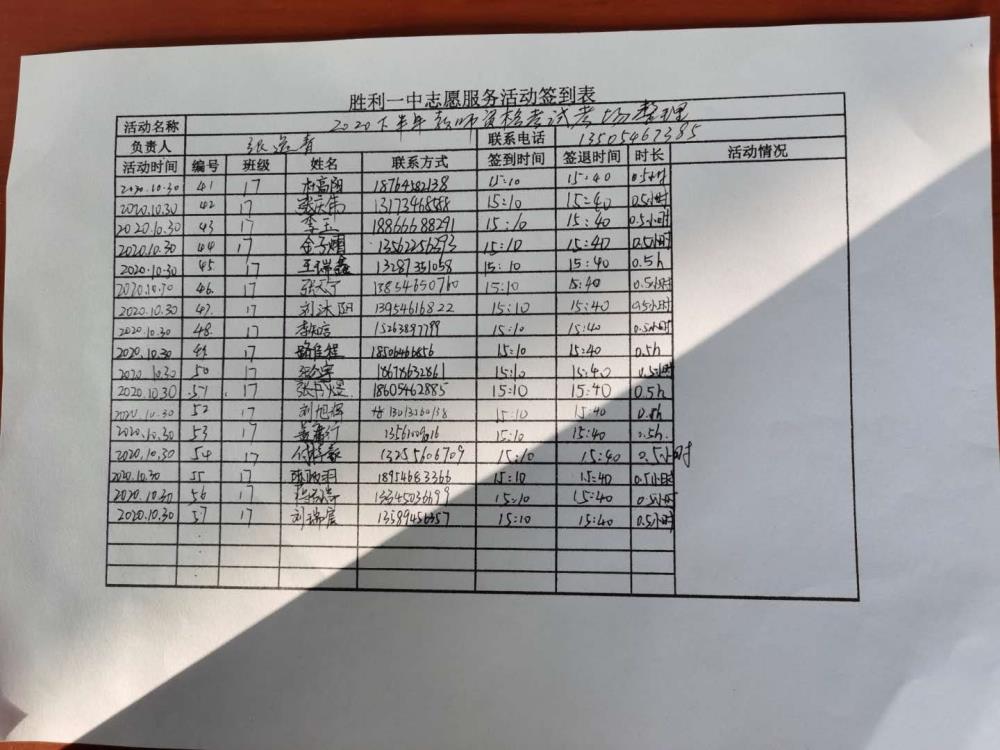 胜利一中志愿服务活动签到表
活动名称 2020下半年教师资格考试考场整理
负责人 张 联系电话 13505467385
活动时间 编号 班级 姓名 联系方式 签到时间 签退时间 时长 活动情况
2020.10.30 41 17 18764582138 15:10 15:40 0.5小时
2020.10.30 42 17 张庆伟 13173468588 15:10 15:40 0.5小时
2020.10.30 43 17 李玉 18866688291 15:10 15:40 0.5小时
2020.10.30 44 17 金子熠 13562256393 15:10 15:40 0.5小时
2020.10.30 45. 17 王瑞鑫 13287351058 15:10 15:40 0.5h
2020.10.30 46. 17 13854650710 15:10 15:40 0.5小时
2020.10.30 47. 17 刘沐阳 13954616822 15:10 15:40 0.5小时
2020.10.30 48. 17 15263897799 15:10 15:40 0.5小时
2020.10.30 49. 17 18506466856 15:10 15:40 0.5h
2020.10.30 50 17 18678632861 15:10 15:40 0.5小时
2020.10.30 51. 17 张丹煜 18605462885 15:10 15:40 0.5h
2020.10.30 52 17 刘旭泽 15:10 15:40 0.5h
2020.10.30 53 17 15:10 15:40 0.5h.
2020.10.30 54 17 13255606709 15:10 15:40 0.5小时
2020.10.30 55 17 18954683366 15:10 15:40 0.5小时
2020.10.30 56 17 13345036699 15:10 15:40 0.5小时
2020.10.30 57 17 刘瑞宸 15:10 15:40 0.5小时